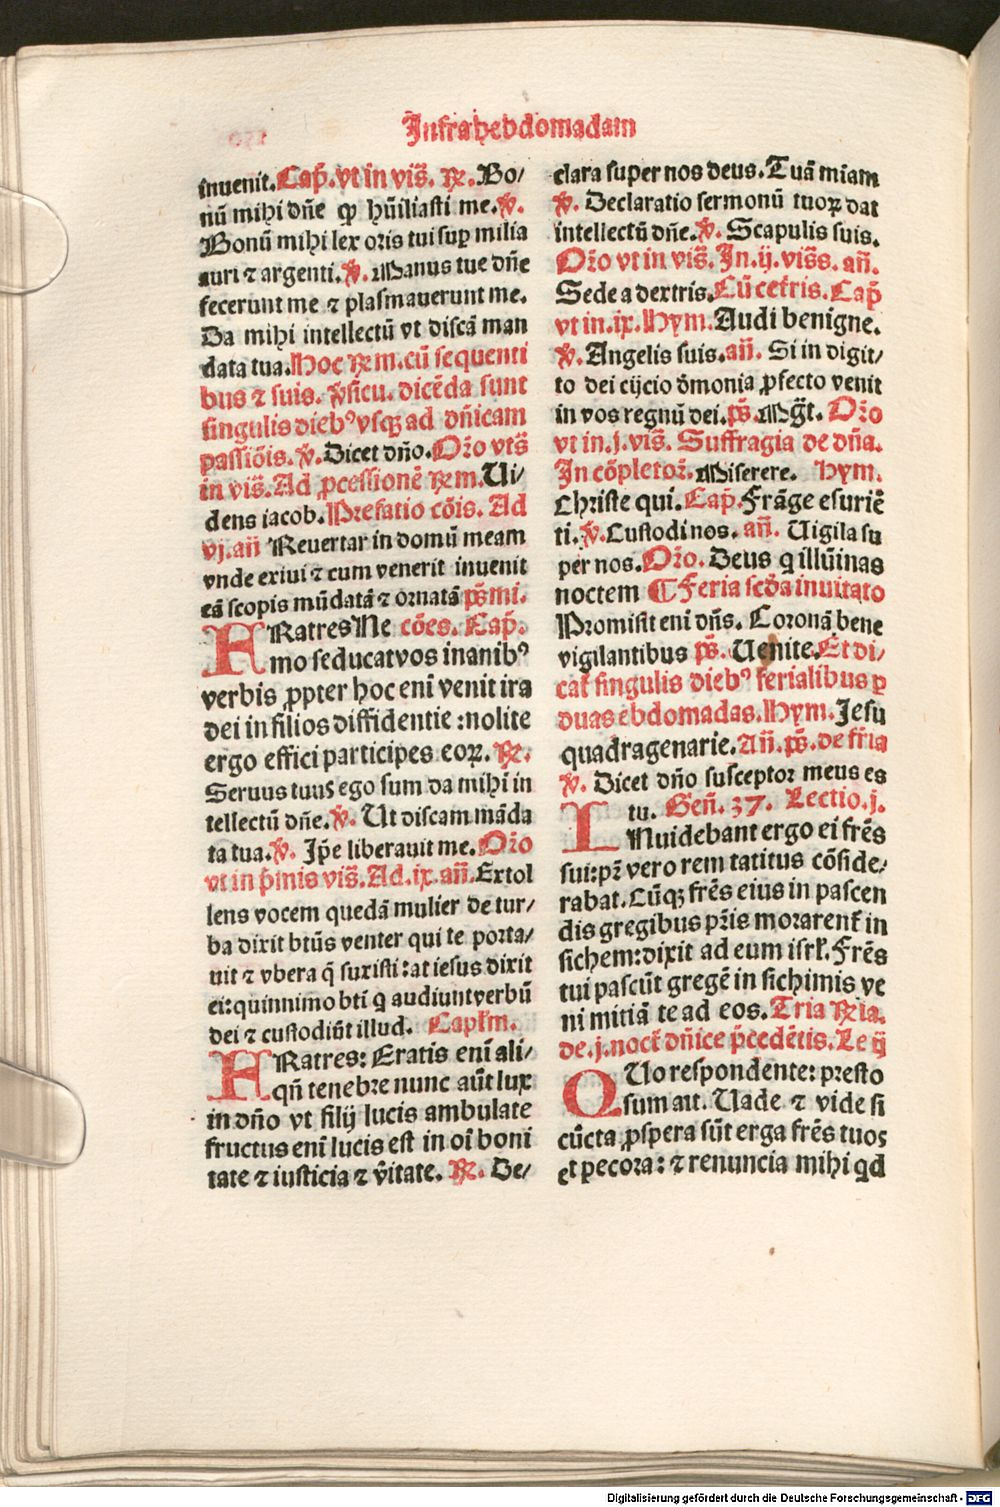 Infra hebdomadam
inuenit. Cap̃. vt in vis̃. ℞. Bo/
nũ mihi dñe ꝙ hũiliasti me. ℣.
Bonũ mihi lex oris tui suꝑ milia
auri ⁊ argenti. ℣. Manus tue dñe
fecerunt me ⁊ plasmauerunt me.
Da mihi intellectũ vt discã man
data tua. Hoc ℞m. cũ sequenti
bus ⁊ suis. ℣sicu. dicẽda sunt
singulis diebꝰ vsqꝫ ad dñicam
passiõis. ℣. Dicet dño. Oꝛ̃o vts̃
in vis̃. Ad ꝓcessionẽ ℞m. Ui/
dens iacob. Prefatio cõis. Ad
vj. añ Reuertar in domũ meam
vnde exiui ⁊ cum venerit inuenit
eã scopis mũdatã ⁊ ornatã ps̃mi.
FRatres Ne cões. Cap̃.
mo seducat vos inanibꝰ
verbis ꝓpter hoc eni᷉ venit ira
dei in filios diffidentie : nolite
ergo effici participes eoꝝ. ℞.
Seruus tuus ego sum da mihi in
tellectũ dñe. ℣. Ut discam mãda
ta tua. ℣. Ip̃e liberauit me. Oꝛ̃o
vt in p̃mis vis̃. Ad. ix. añ. Extol
lens vocem quedã mulier de tur/
ba dixit btũs venter qui te poꝛta/
uit ⁊ vbera q̃ suxisti : at iesus dixit
ei : quinnimo bti᷉ q̃ audiunt verbũ
dei ⁊ custodiũt illud. Capl̃m.
FRatres : Eratis eni᷉ ali/
qñ tenebre nunc aũt lux
in dño vt filij lucis ambulate
fructus eni᷉ lucis est in oi᷉ boni
tate ⁊ iusticia ⁊ ṽitate. ℞. De/
clara super nos deus. Tuã miam
℣. Declaratio sermonũ tuoꝝ dat
intellectũ dñe. ℣. Scapulis suis.
Oꝛ̃o vt in vis̃. In. ij. vis̃s. añ.
Sede a dextris. Cũ cet̃ris. Cap̃
vt in. ix. Hym. Audi benigne.
℣. Angelis suis. añ. Si in digit/
to dei eijcio dm̃onia ꝓfecto venit
in vos regnũ dei. ps̃. Mg̃t. Oꝛ̃o
vt in. j. vis̃. Suffragia de dña.
In cõpletoꝛ̃. Miserere. Hym.
Christe qui. Cap̃. Frãge esuriẽ
ti. ℣. Custodi nos. añ. Uigila su
per nos. Oꝛ̃o. Deus q illũinas
noctem ¶ Feria scd̃a inuitato
Promisit eni᷉ dñs. Coronã bene
vigilantibus ps̃. Uenite. Et di/
cat̃ singulis diebꝰ ferialibus ꝑ
duas ebdomadas. Hym. Jesu
quadragenarie. Añ. ps̃. de fr̃ia
℣. Dicet dño susceptoꝛ meus es
tu. Geñ. 37. Lectio. j.
INuidebant ergo ei fr̃es
sui : pr̃ vero rem tatitus cõside/
rabat. Cũqꝫ fr̃es eius in pascen
dis gregibus pr̃is moꝛarent̃ in
sichem : dixit ad eum isrl̃. Fr̃es
tui pascũt gregẽ in sichimis ve
ni mitiã te ad eos. Tria ℞ia.
de. j. noct̃ dñice p̃cedẽtis. Le ij
QUo respondente : presto
sum ait. Uade ⁊ vide si
cũcta ꝓspera sũt erga fr̃es tuos
et pecoꝛa : ⁊ renuncia mihi qd
Digitalisierung gefördert durch die Deutsche Forschungsgemeinschaft - DFG